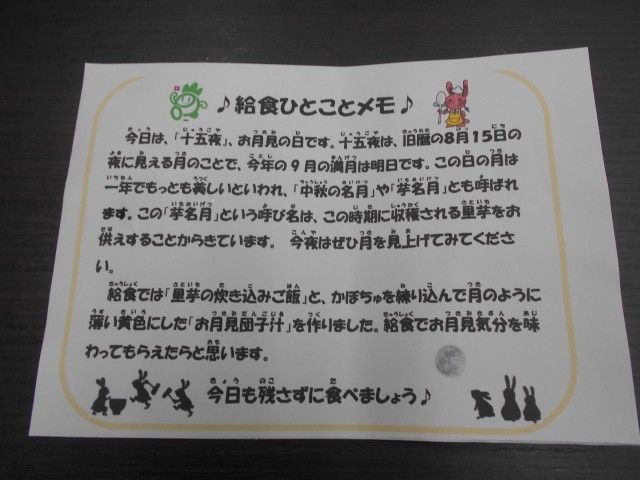 ♪給食ひとことメモ♪
今日は、「十五夜」、お月見の日です。十五夜は、旧暦の8月15日の
夜に見える月のことで、今年の9月の満月は明日です。この日の月は
一年でもっとも美しいといわれ、「中秋の名月」や「芋名月」とも呼ばれ
ます。この「芋名月」という呼び名は、この時期に収穫される里芋をお
供えすることからきています。 今夜はぜひ月を見上げてみてくださ
い。
給食では「里芋の炊き込みご飯」と、かぼちゃを練り込んで月のように
薄い黄色にした「お月見団子汁」を作りました。給食でお月見気分を味
わってもらえたらと思います。
今日も残さずに食べましょう♪